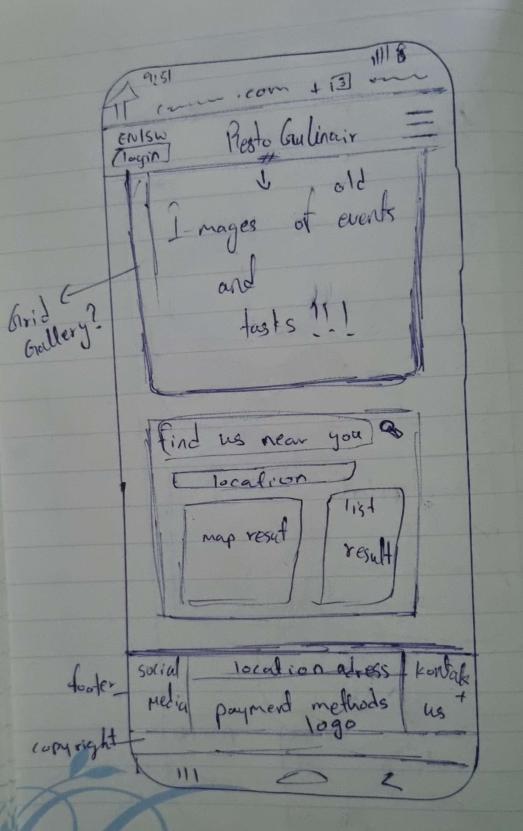 9:51
.com + 3
EN/SW
login
Resto Culinair
old
Images of events
and
tasks !!!
Grid
Gallery?
find us near you
location
map resut
list
result
footer
social
Media
location adress
payment methods
logo
kontak
t
us
copyright